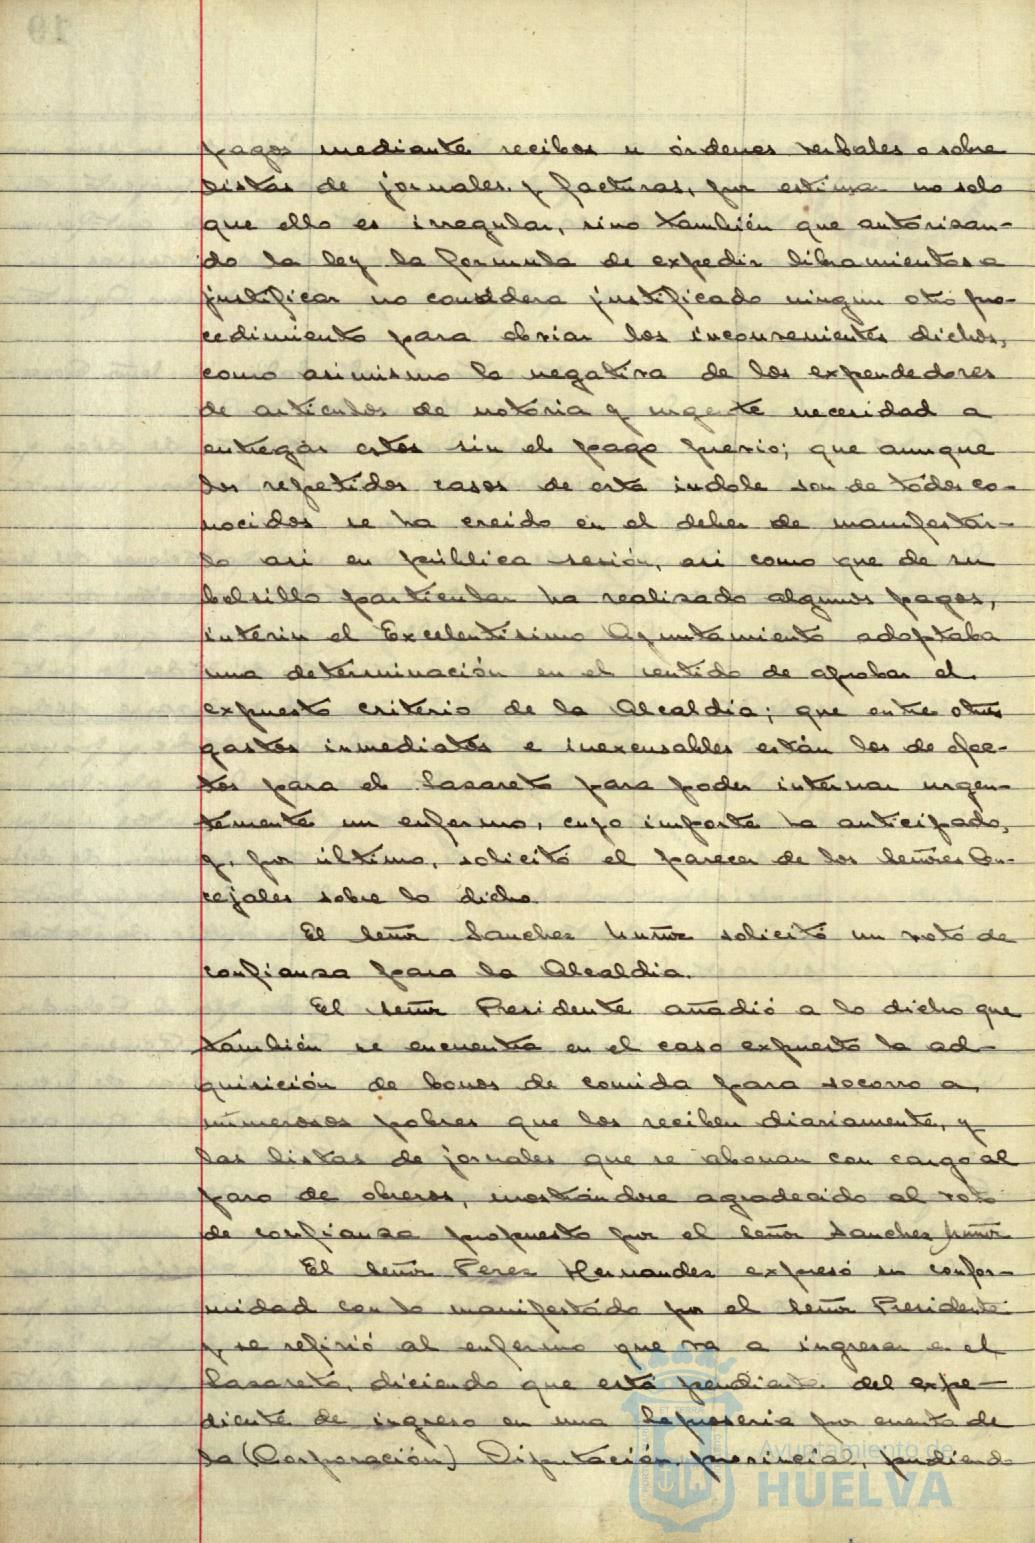 pagos mediante recibos u órdenes verbales o sobre
listas de jornales y facturas, por estimar no solo
que ello es irregular, sino también que autorizan-
do la ley la formula de expedir libramientos a
justificar no considera justificado ningun otro pro-
cedimiento para obviar los inconvenientes dichos,
como asimismo la negativa de los expendedores
de articulos de notoria y urgente necesidad a
entregar estos sin el pago previo; que aunque
los repetidos casos de esta indole son de todos co-
nocidos se ha creido en el deber de manifestar-
lo asi en pública sesión, asi como que de su
bolsillo particular ha realizado algunos pagos,
interin el Excelentisimo Ayuntamiento adoptaba
una determinación en el sentido de aprobar el
expuesto criterio de la Alcaldia; que entre otros
gastos inmediatos e inexcusables están los de efec-
tos para el Lazareto para poder internar urgen-
temente un enfermo, cuyo importe ha anticipado,
y, por último, solicitó el parecer de los Señores Con-
cejales sobre lo dicho.
El Señor Sanchez Muñoz solicitó un voto de
confianza para la Alcaldia.
El señor Presidente añadió a lo dicho que
también se encuentra en el caso expuesto la ad-
quisición de bonos de comida para socorro a
numerosos pobres que los reciben diariamente, y
las listas de jornales que se abonan con cargo al
paro de obreros, mostrándose agradecido al voto
de confianza propuesto por el Señor Sanchez Muñoz
El Señor Perez Hernandez expresó su confor-
midad con lo manifestado por el Señor Presidente
y se refirió al enfermo que va a ingresar en el
Lazareto, diciendo que está pendiente del expe-
diente de ingreso en una Leproseria por cuenta de
la (Corporación) Diputación provincial, pudiendo
Ayuntamiento de
HUELVA